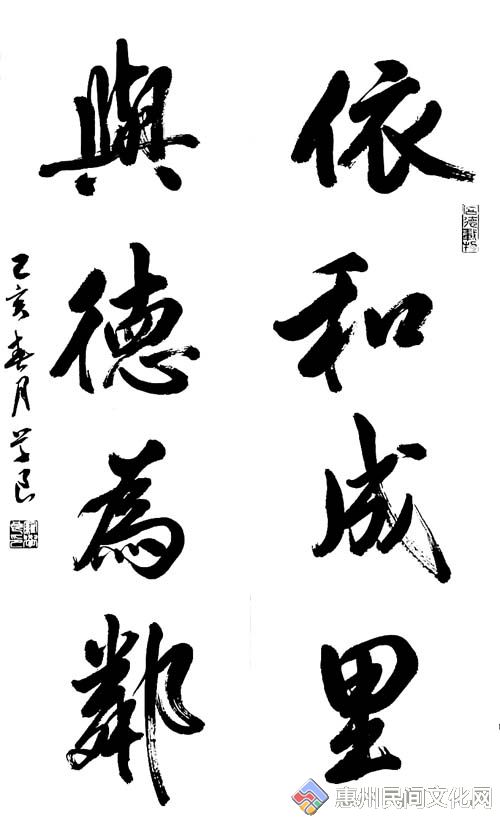 依和成里
與德為鄰
己亥春月学良
惠州民间文化网